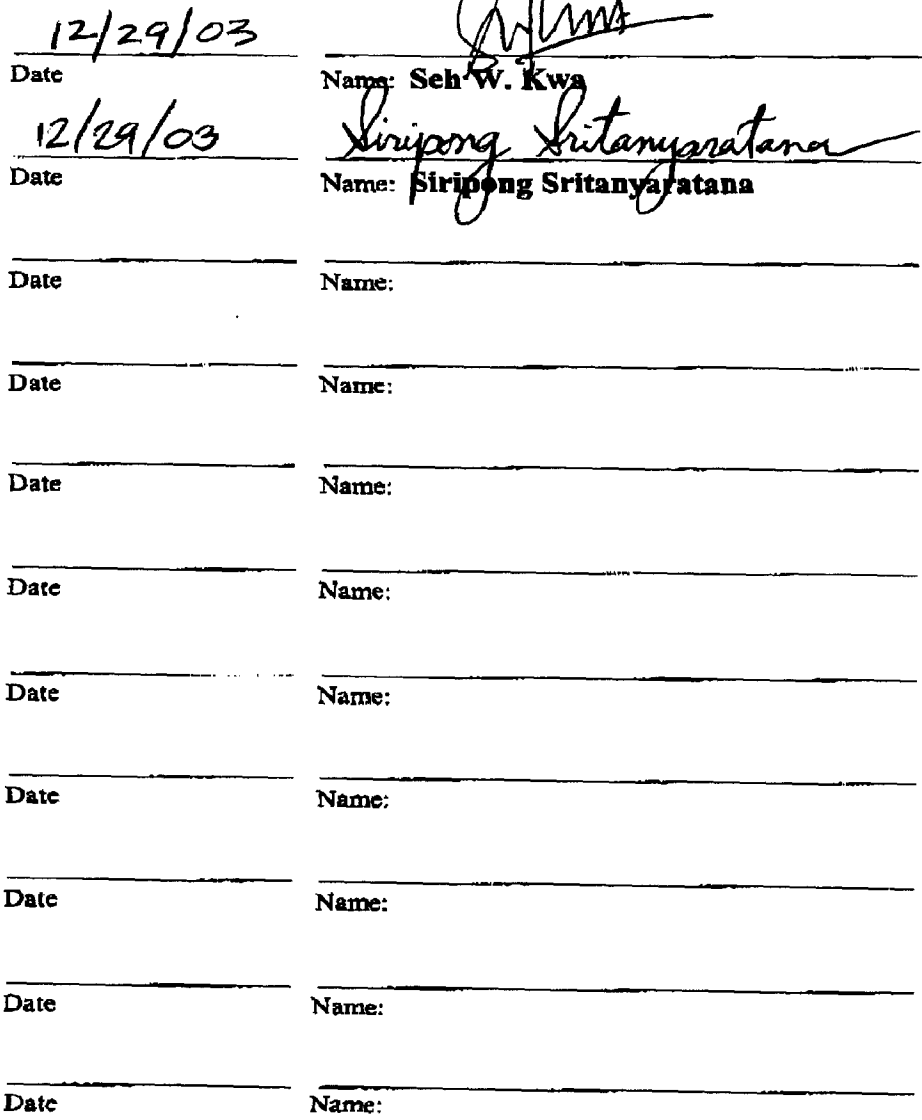 12/29/03
Date Name: Seh W. Kwa
12/29/03 Siripong Sritanyaratana
Date Name: Siripong Sritanyaratana
Date Name:
Date Name:
Date Name:
Date Name:
Date Name:
Date Name:
Date Name:
Date Name:
Date Name: